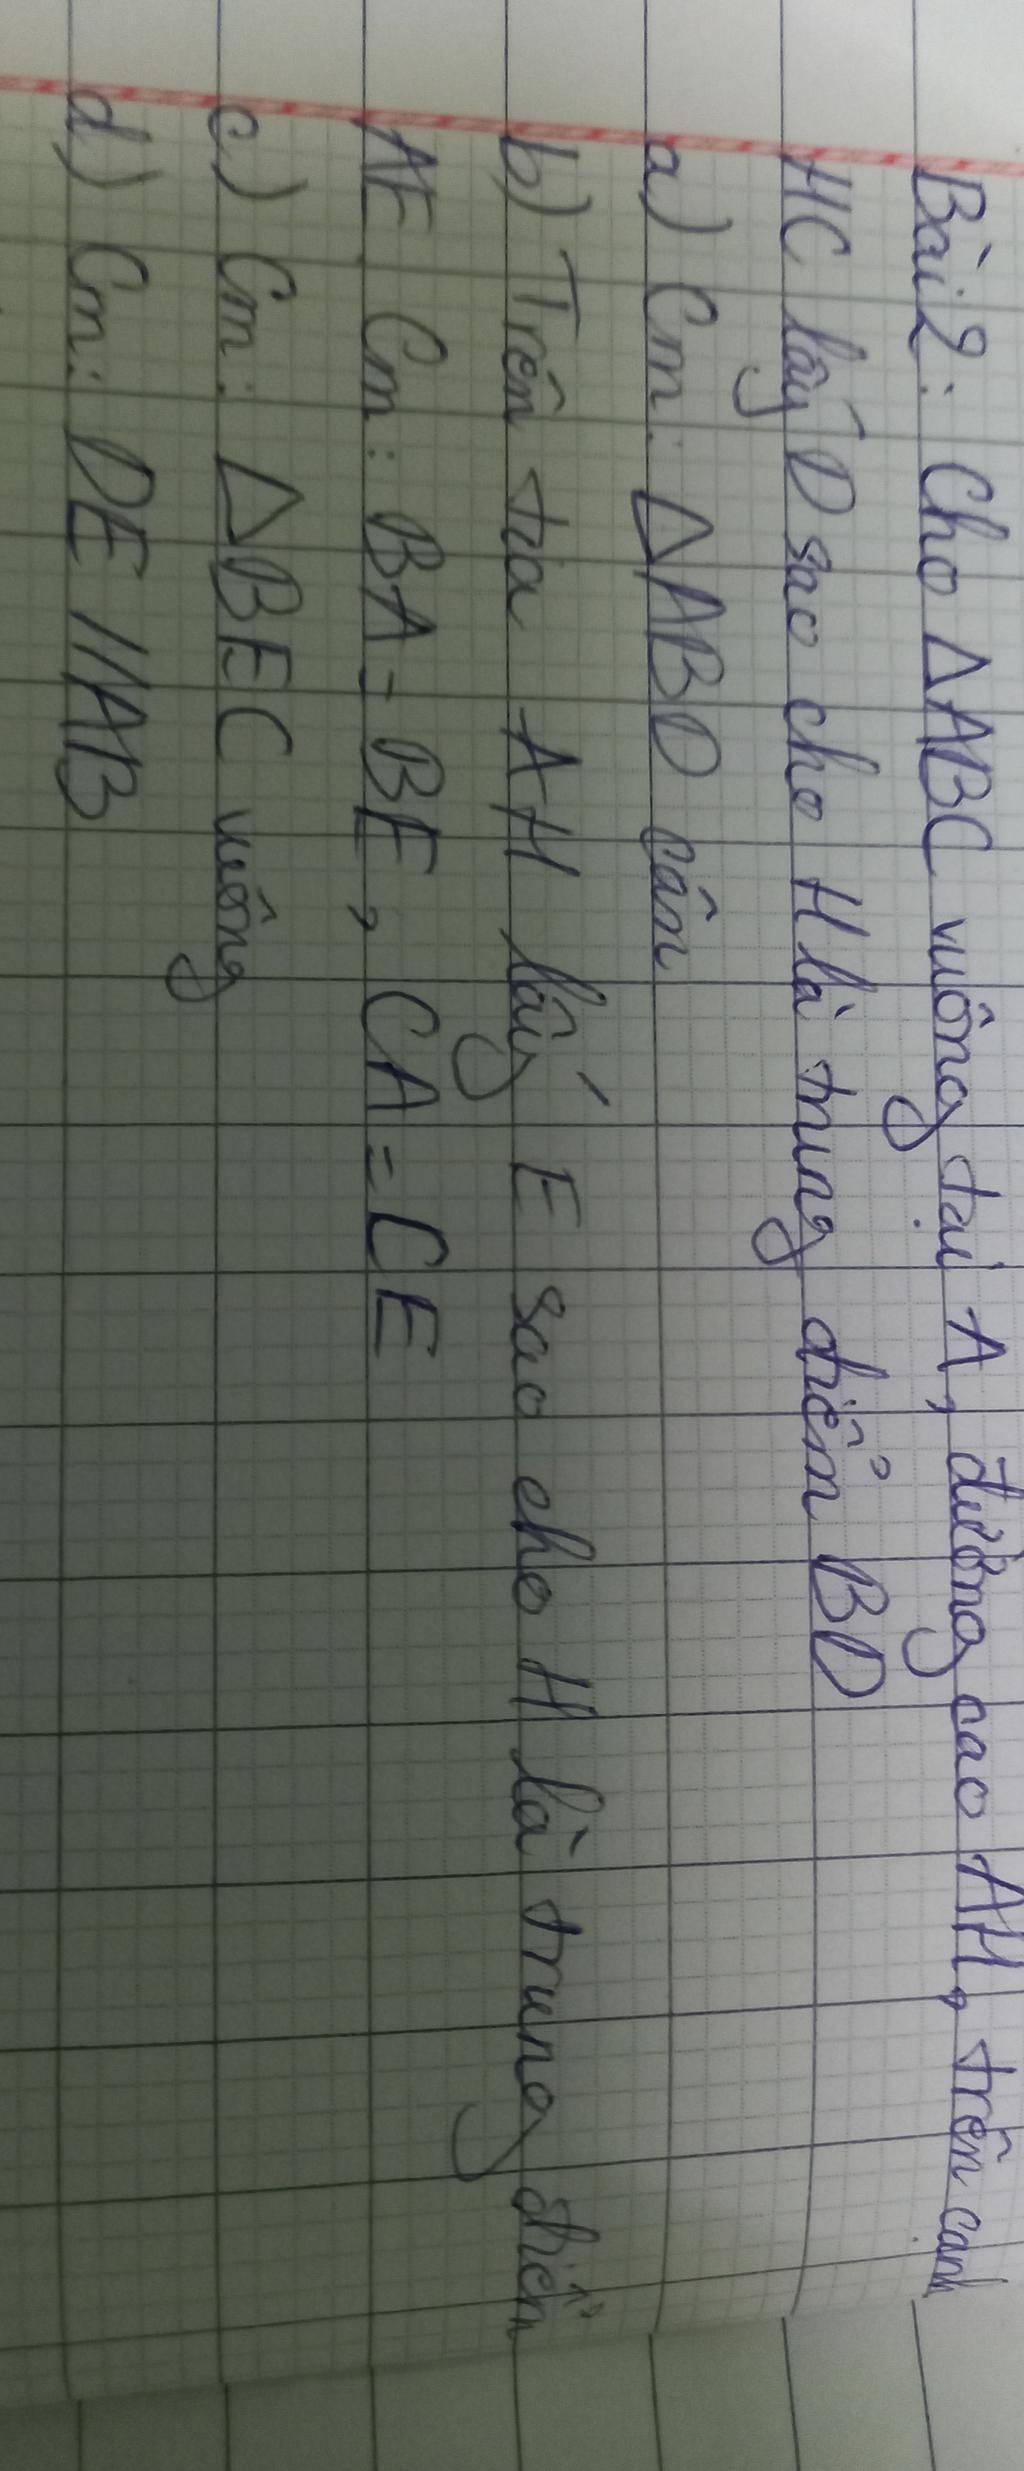 Bài 2: Cho ΔABC vuông tại A, đường cao AH, trên cạnh
HC lấy D sao cho H là trung điểm BD
a) Cm: ΔABD cân
b) Trên tia AH lấy E sao cho H là trung điểm
AE Cm: BA = BE, CA = CE
c) Cm: ΔBEC vuông
d) Cm: DE //AB